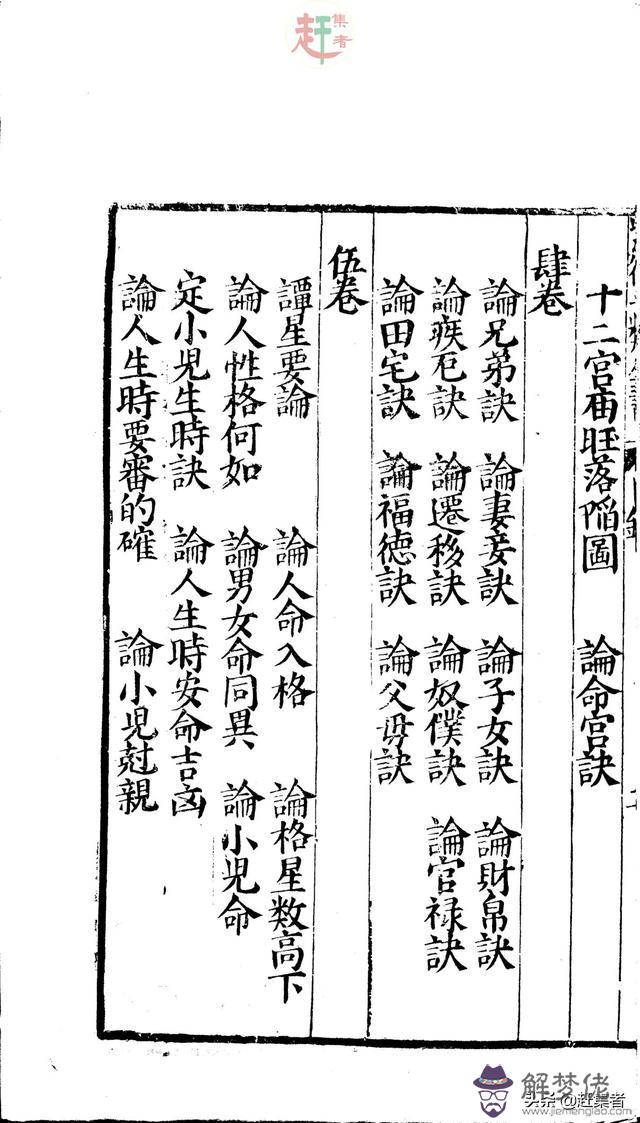 赶集者
十二宮庙旺落陷圖 論命宮訣
肆卷
論兄弟訣 論妻妾訣 論子女訣 論財帛訣
論疾厄訣 論遷移訣 論奴僕訣 論官禄訣
論田宅訣 論福德訣 論父母訣
伍卷
譚星要論 論人命入格 論格星数高下
論人性格何如 論男女命同異 論小児命
定小児生時訣 論人生時安命吉凶
論人生時要審的確 論小児尅親
解梦佬
头条@赶集者
www.jiemenglao.com